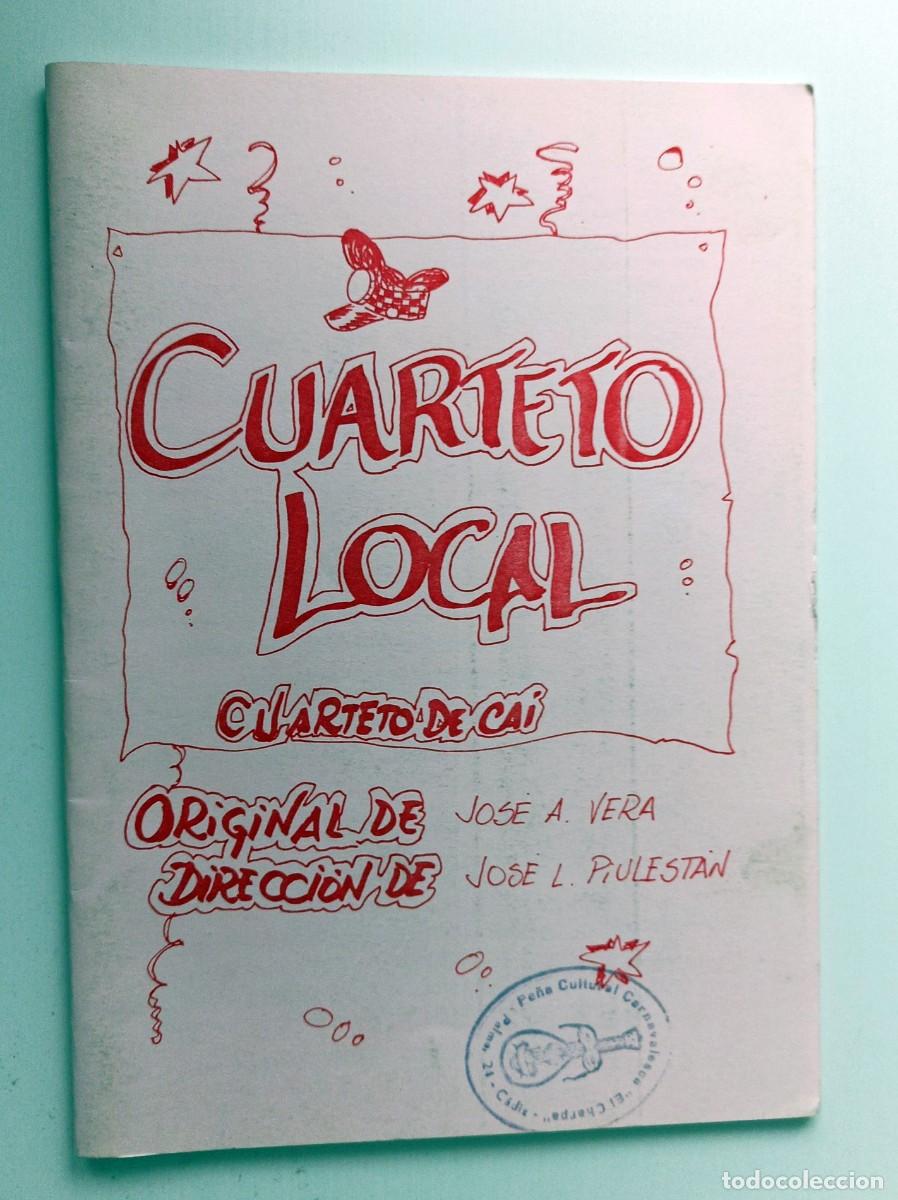 CUARTETO
LOCAL
CUARTETO DE CAI
ORIGINAL DE JOSE A. VERA
DIRECCIÓN DE JOSÉ L. PIULESTÁN
Peña Cultural Carnavalesca "El Charpa"
Palma, 21 - Cádiz -
todocoleccion